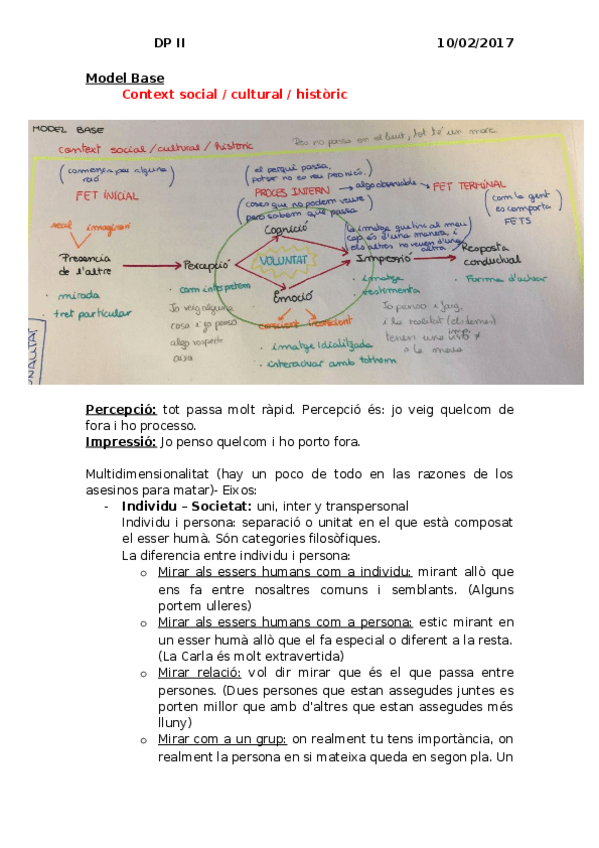 DP II 10/02/2017
Model Base
Context social / cultural / històric
MODEL BASE
context social / cultural / històric
Res no passa en el buit, tot té un marc
(comença per alguna raó)
FET INICIAL
(el perquè passa, potser no es veu però hi és.)
PROCÉS INTERN → algo observable → FET TERMINAL
(coses que no podem veure però sabem què passa)
(com la gent es comporta
FETS)
real imaginari
Presencia de l'altre
Percepció
Cognició
VOLUNTAT
Emoció
(la imatge que tinc al meu cap és d'una manera, i els altres no veuen d'una altra)
Impressió
Resposta conductual
· mirada
· tret particular
· com interpretem
Jo veig alguna cosa i jo penso algo respecte aixa
conscient inconscient
· imatge idialitzada
· interactuar amb tothom
· imatge
· vestimenta
Jo penso i faig, i la realitat
tenen una imp. ≠ a la meva
· Forma d'actuar
Percepció: tot passa molt ràpid. Percepció és: jo veig quelcom de
fora i ho processo.
Impressió: Jo penso quelcom i ho porto fora.
Multidimensionalitat (hay un poco de todo en las razones de los
asesinos para matar)- Eixos:
- Individu – Societat: uni, inter y transpersonal
Individu i persona: separació o unitat en el que està composat
el esser humà. Són categories filosòfiques.
La diferencia entre individu i persona:
o Mirar als essers humans com a individu: mirant allò que
ens fa entre nosaltres comuns i semblants. (Alguns
portem ulleres)
o Mirar als essers humans com a persona: estic mirant en
un esser humà allò que el fa especial o diferent a la resta.
(La Carla és molt extravertida)
o Mirar relació: vol dir mirar que és el que passa entre
persones. (Dues persones que estan assegudes juntes es
porten millor que amb d'altres que estan assegudes més
lluny)
o Mirar com a un grup: on realment tu tens importància, on
realment la persona en si mateixa queda en segon pla. Un